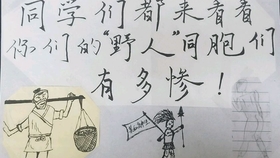 同学们都来看看
你们的“野人”同胞们
有多惨！